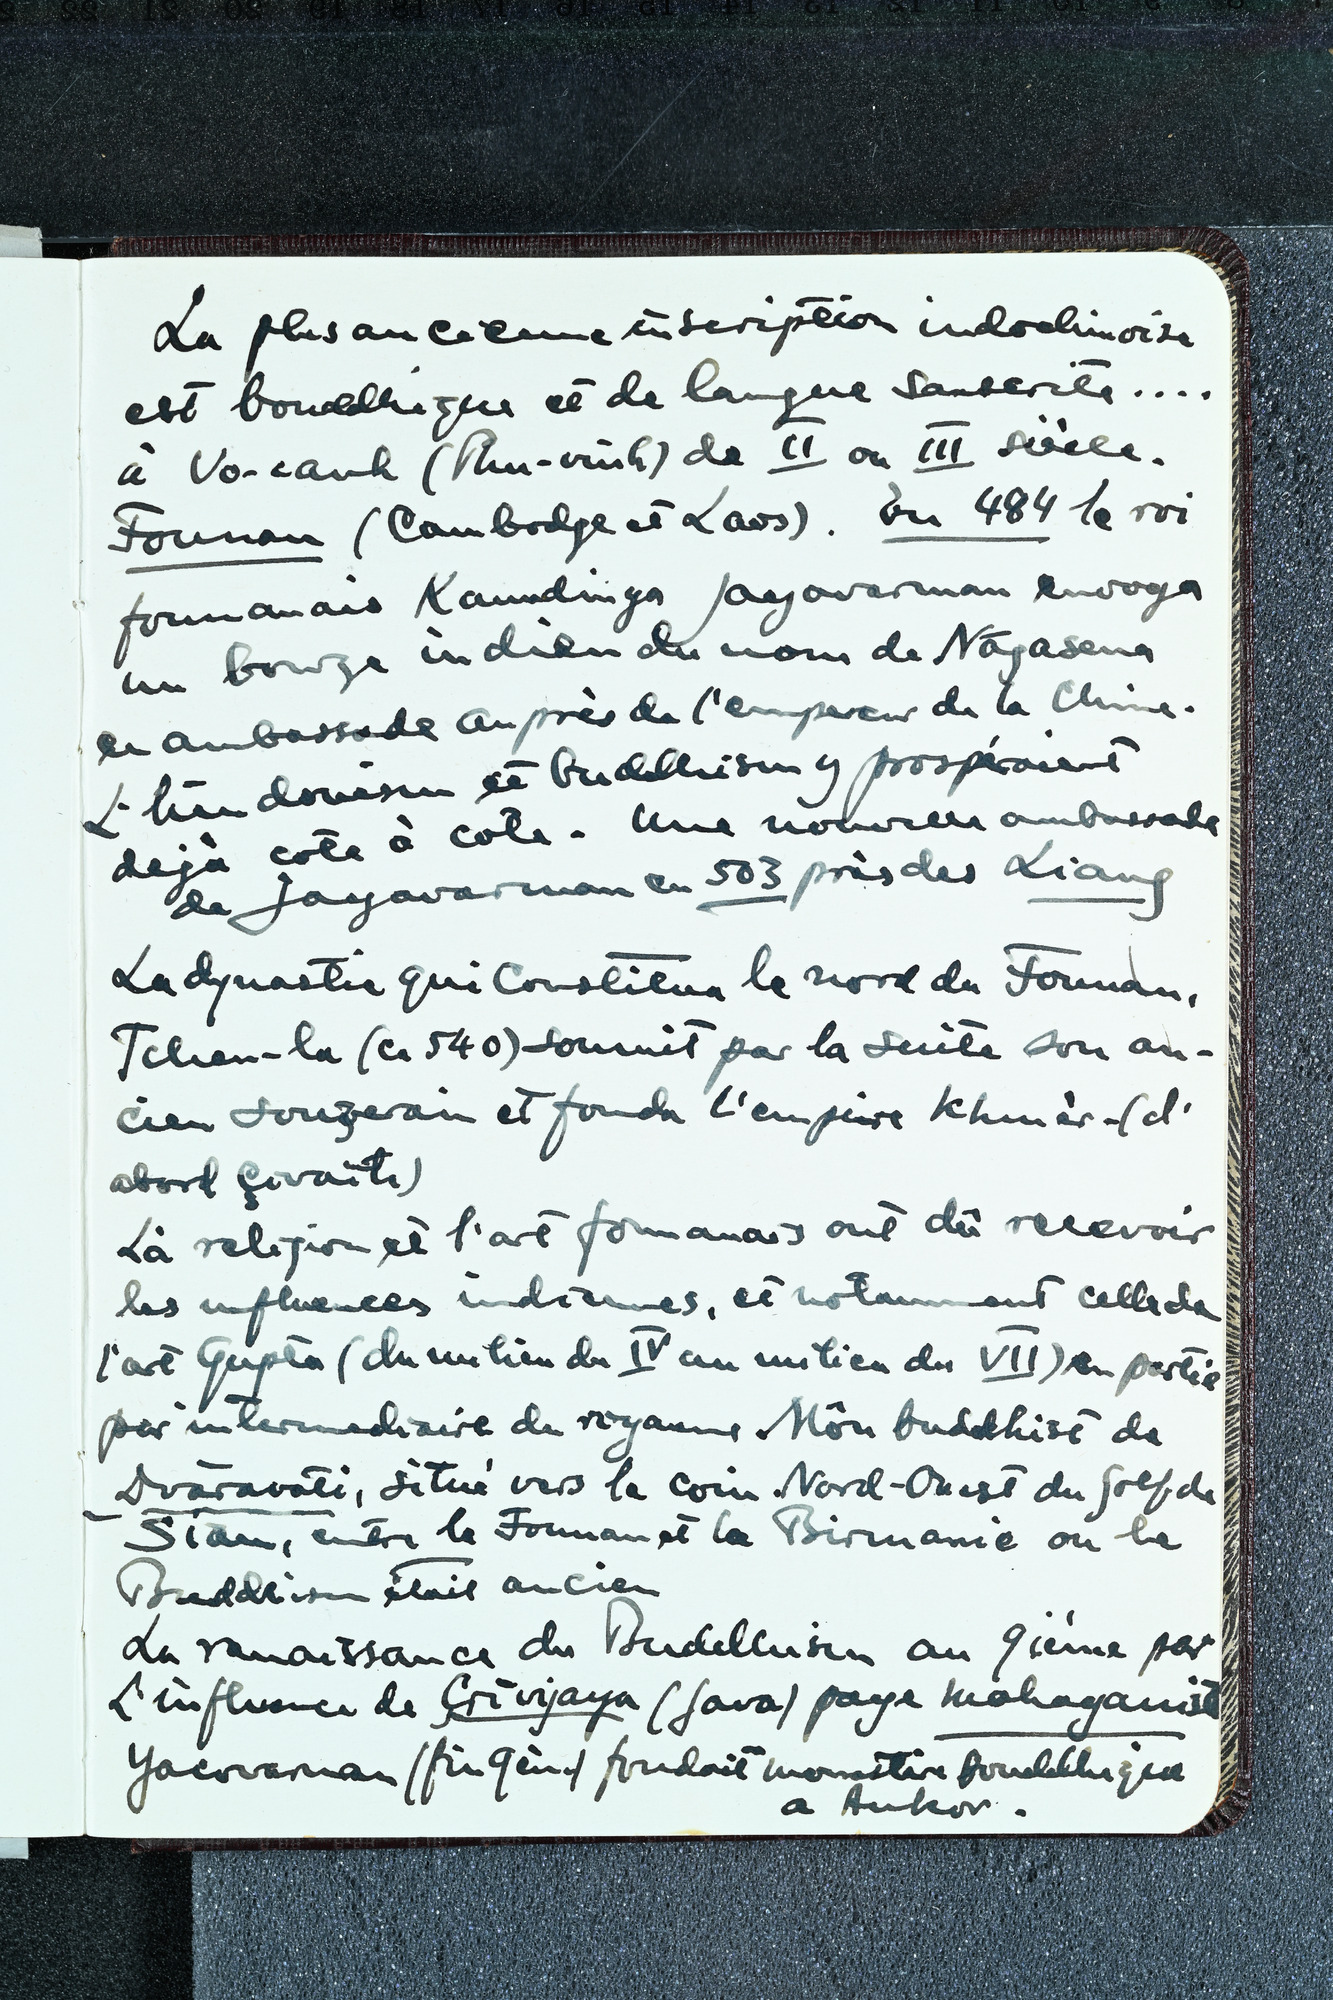 La plus ancienne inscription indochinoise
est bouddhique et de langue sanscrite....
à Vo-canh (Phu-vinh) de II ou III siècle.
Founan (Cambodge et Laos). En 484 le roi
founanais Kaundinya Jayavarman envoya
un bonze indien du nom de Nāgasena
en ambassade auprès de l'empereur de la Chine.
L'hindouism et buddhism y prospéraient
dejà cote à cote. Une nouvelle ambassade
de Jayavarman en 503 près des Liang
La dynastie qui Constitua le nord du Founan,
Tchen-la (ca 540) soumit par la suite son an-
cien souzerain et fonda l'empire Khmèr-(d'
abord çivaite)
Là religion et l'art founanais ont dû recevoir
les influences indiennes, et notamment celle de
l'art Gupta (du milieu du IV au milieu du VII) en partie
par intermediaire du royaume Môn buddhist de
Dvāravati, situé vers le coin Nord-Ouest du golf de
Siam, entre le Founan et la Birmanie ou le
Buddhism était ancien
La renaissance du Buddhism au 9ième par
L'influence de Çrivijaya (Java) paye mahayanist
Yacovarman (fin 9èm) fondait monastire bouddhique
a Ankor.